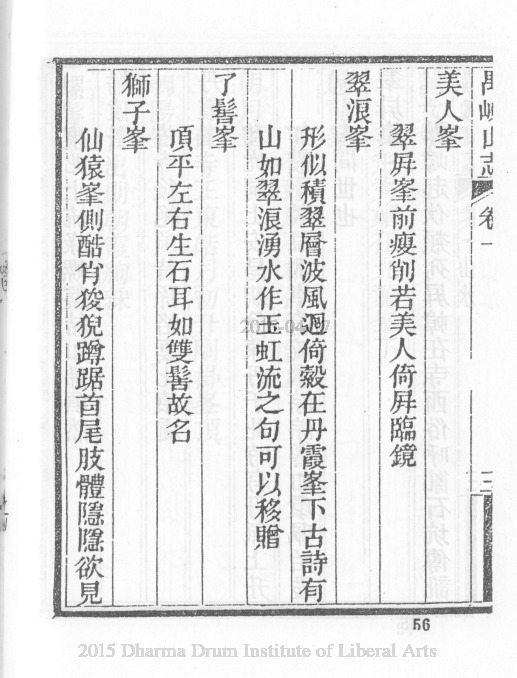 禺峽山志 卷一 三
美人峯
翠屛峯前瘦削若美人倚屛臨鏡
翠浪峯
形似積翠層波風迴倚縠在丹霞峯下古詩有
山如翠浪湧水作玉虹流之句可以移贈
了髻峯
頂平左右生石耳如雙髻故名
獅子峯
仙猿峯側酷肖狻猊蹲踞首尾肢體隱隱欲見
56
2015 Dharma Drum Institute of Liberal Arts